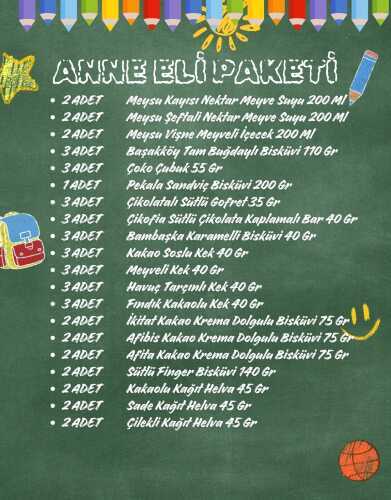 ANNE ELİ PAKETİ
• 2 ADET Meysu Kayısı Nektar Meyve Suyu 200 Ml
• 2 ADET Meysu Şeftali Nektar Meyve Suyu 200 Ml
• 2 ADET Meysu Vişne Meyveli İçecek 200 Ml
• 3 ADET Başakköy Tam Buğdaylı Bisküvi 110 Gr
• 3 ADET Çoko Çubuk 55 Gr
• 1 ADET Pekala Sandviç Bisküvi 200 Gr
• 3 ADET Çikolatalı Sütlü Gofret 35 Gr
• 3 ADET Çikofia Sütlü Çikolata Kaplamalı Bar 40 Gr
• 3 ADET Bambaşka Karamelli Bisküvi 40 Gr
• 3 ADET Kakao Soslu Kek 40 Gr
• 3 ADET Meyveli Kek 40 Gr
• 3 ADET Havuç Tarçınlı Kek 40 Gr
• 3 ADET Fındık Kakaolu Kek 40 Gr
• 2 ADET İkitat Kakao Krema Dolgulu Bisküvi 75 Gr
• 2 ADET Afibis Kakao Krema Dolgulu Bisküvi 75 Gr
• 2 ADET Afita Kakao Krema Dolgulu Bisküvi 75 Gr
• 2 ADET Sütlü Finger Bisküvi 140 Gr
• 2 ADET Kakaolu Kağıt Helva 45 Gr
• 2 ADET Sade Kağıt Helva 45 Gr
• 2 ADET Çilekli Kağıt Helva 45 Gr